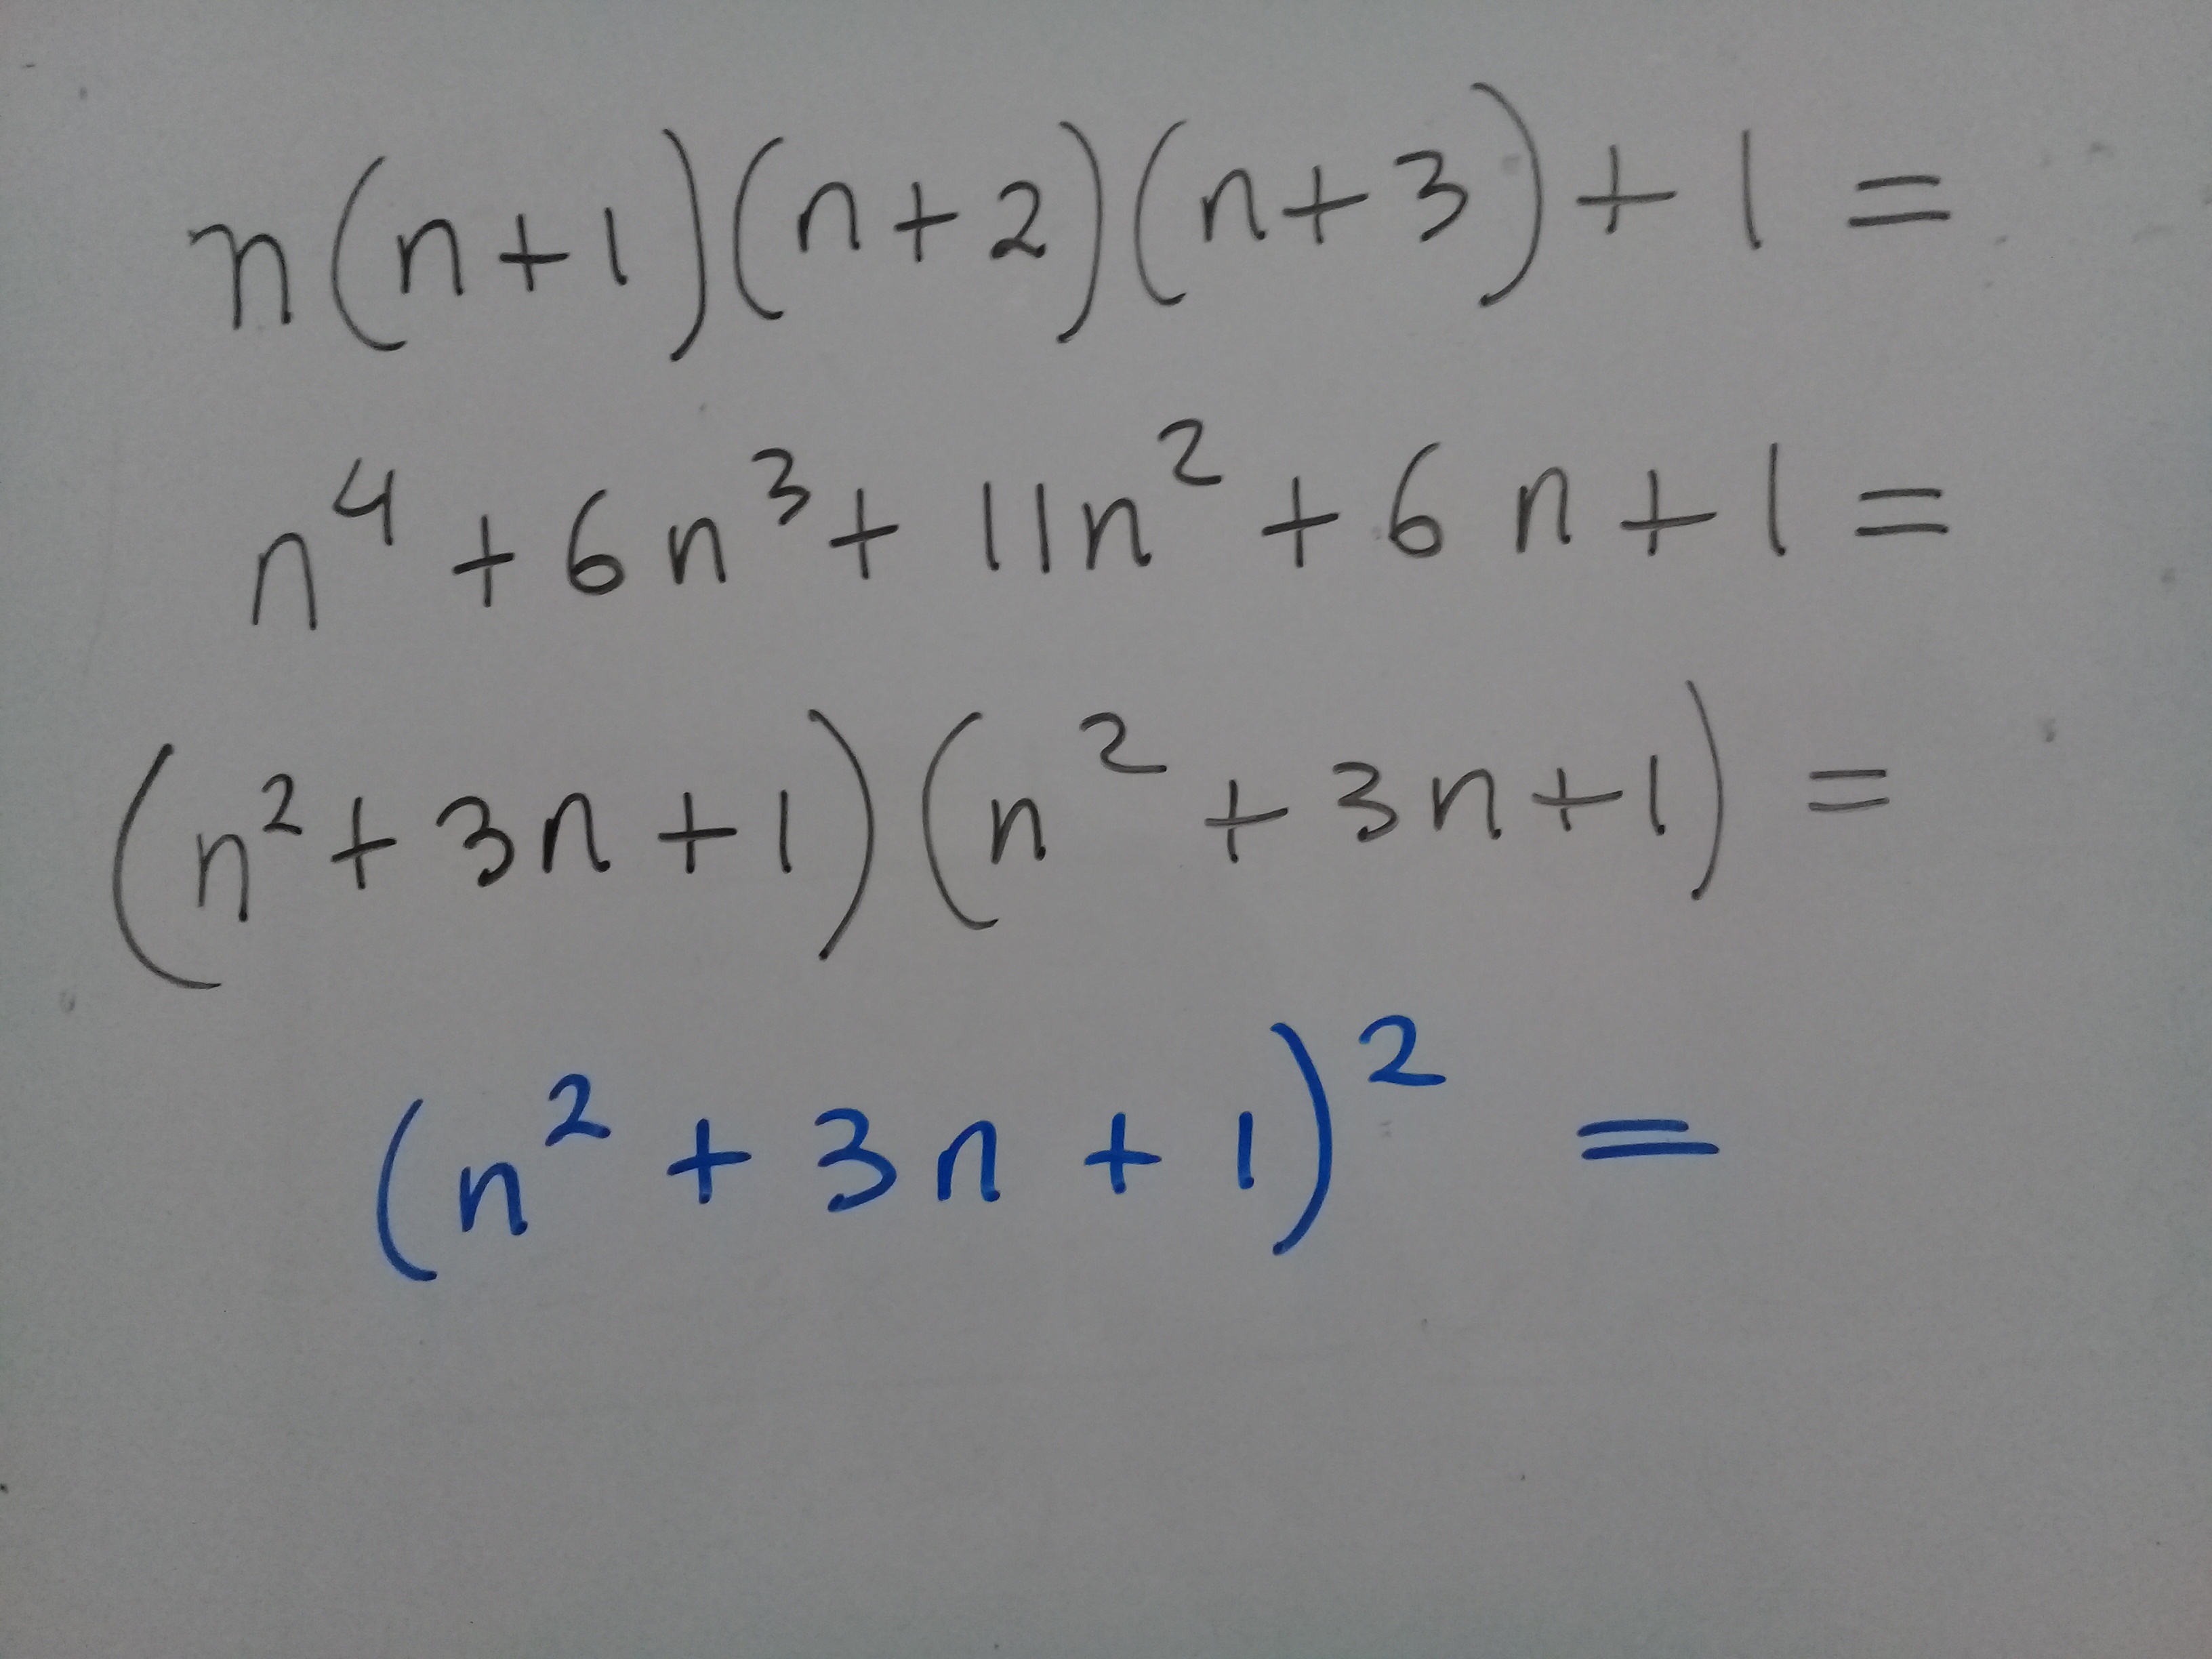 n(n+1)(n+2)(n+3)+1=
n⁴+6n³+11n²+6n+1=
(n²+3n+1)(n²+3n+1)=
(n²+3n+1)²=